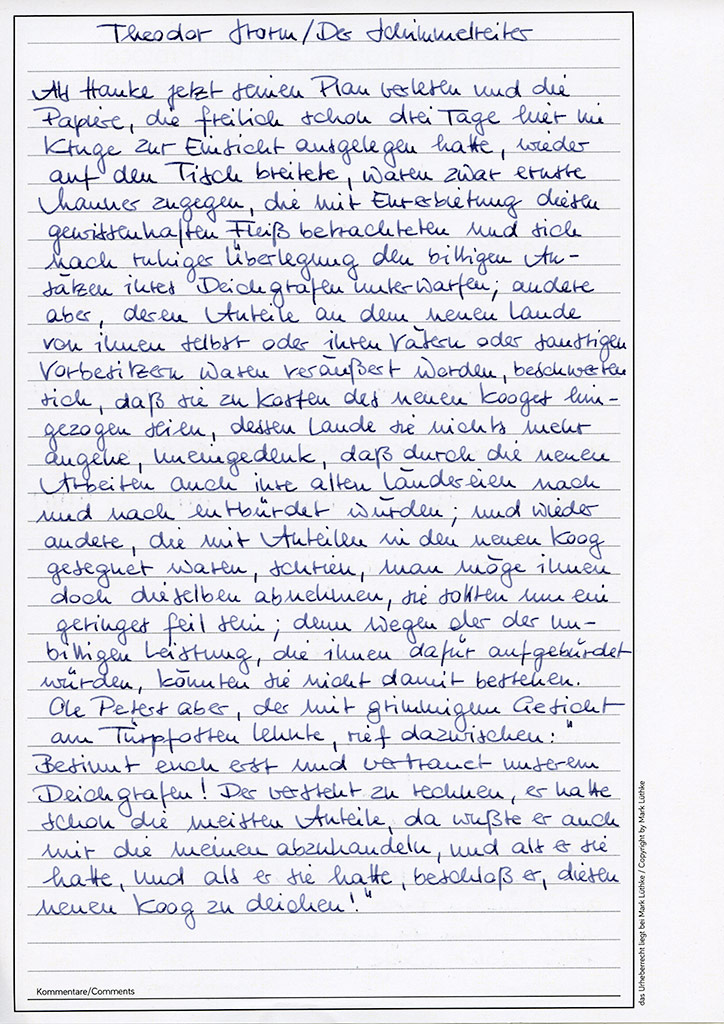 Theodor Storm/Der Schimmelreiter
Als Hauke jetzt seinen Plan verlesen und die
Papiere, die freilich schon drei Tage hier im
Kruge zur Einsicht ausgelegen hatte, wieder
auf den Tisch breitete, waren zwar ernste
Männer zugegen, die mit Ehrerbietung diesen
gewissenhaften Fleiß betrachteten und sich
nach ruhiger Überlegung den billigen An-
sätzen ihres Deichgrafen unterwarfen; andere
aber, deren Anteile an dem neuen Lande
von ihnen selbst oder ihren Vätern oder sonstigen
Vorbesitzern waren veräußert worden, beschwerten
sich, daß sie zu Kosten des neuen Kooges hin-
gezogen seien, dessen Lande sie nichts mehr
angehe, uneingedenk, daß durch die neuen
Arbeiten auch ihre alten Ländereien nach
und nach entbürdet würden; und wieder
andere, die mit Anteilen in den neuen Koog
gesegnet waren, schrien, man möge ihnen
doch dieselben abnehmen, sie sollten um ein
geringes feil sein; denn wegen der der un-
billigen Leistung, die ihnen dafür aufgebürdet
würden, könnten sie nicht damit bestehen.
Ole Peters aber, der mit grimmigem Gesicht
am Türpfosten lehnte, rief dazwischen: "
Besinnt euch erst und vertrauet unserem
Deichgrafen! Der versteht zu rechnen, er hatte
schon die meisten Anteile, da wußte er auch
mir die meinen abzuhandeln, und als er sie
hatte, und als er sie hatte, beschloß er, diesen
neuen Koog zu deichen!"
Kommentare/Comments
das Urheberrecht liegt bei Mark Lüthke / Copyright by Mark Lüthke